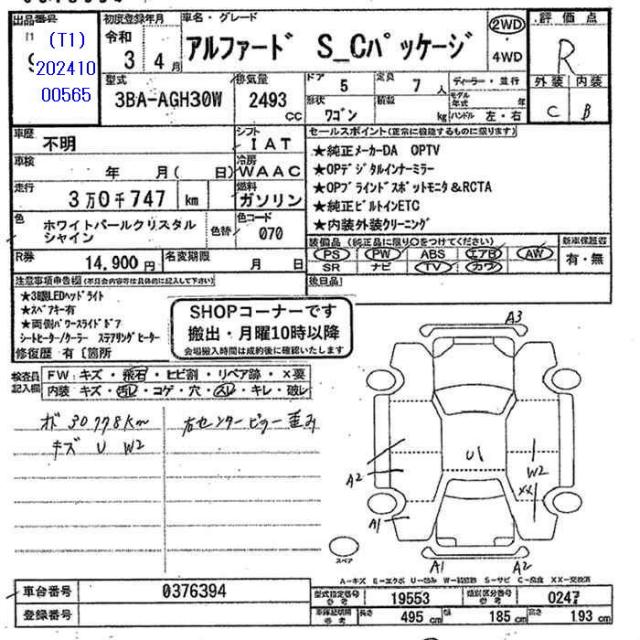 出品番号 初度登録年月 車名・グレード 評価点
(T1)
202410
00565
令和
3 年 4 月
アルファード S_Cパッケージ
2WD
・
4WD
R
外装 内装
C B
型式 排気量 ドア 定員 ディーラー・並行
3BA-AGH30W 2493 CC 5 7 人
形状 積載 モデル年式 年
ワゴン kg ハンドル 左・右
車歴 不明 シフト IAT
車検 年 月 ( 日) 冷房 WAAC
走行 3万0千747 km 燃料 ガソリン
色 ホワイトパールクリスタル
シャイン
色替 色コード 070
R券 14,900円 名変期限 月 日
セールスポイント(正常に機能するものに限ります)
★純正メーカーDA OPTV
★OPデジタルインナーミラー
★OPブラインドスポットモニタ&RCTA
★純正ビルトインETC
★内装外装クリーニング
装備品(純正品に限り○をつけてください) 新車保証書
PS PW ABS エアB AW 有・無
SR ナビ TV カワ
後日品
注意事項申告欄(不具合内容等は具体的に記入して下さい)
★3眼LEDヘッドライト
★スペアキー有
★両側パワースライドドア
シートヒーター/クーラー ステアリングヒーター
修復歴 有 [箇所
SHOPコーナーです
搬出・月曜10時以降
会場搬入時間は成約後に確認いたします
検査員記入欄
FW:キズ・飛石・ヒビ割・リペア跡・×要
内装:キズ・汚レ・コゲ・穴・スレ・キレ・破レ
オド 30778km
キズ U W2
右センターピラー歪み
A3
U1
A2
W2
XX
A1
A1 A2
スペア
A-キズ E-エクボ U-凹み W-補修跡 S-サビ C-腐食 XX-交換済
車台番号 0376394
登録番号
型式指定番号 参考 19553 類別区分番号 参考 0247
車庫証明用 参考 長さ 495 cm 幅 185 cm 高さ 193 cm